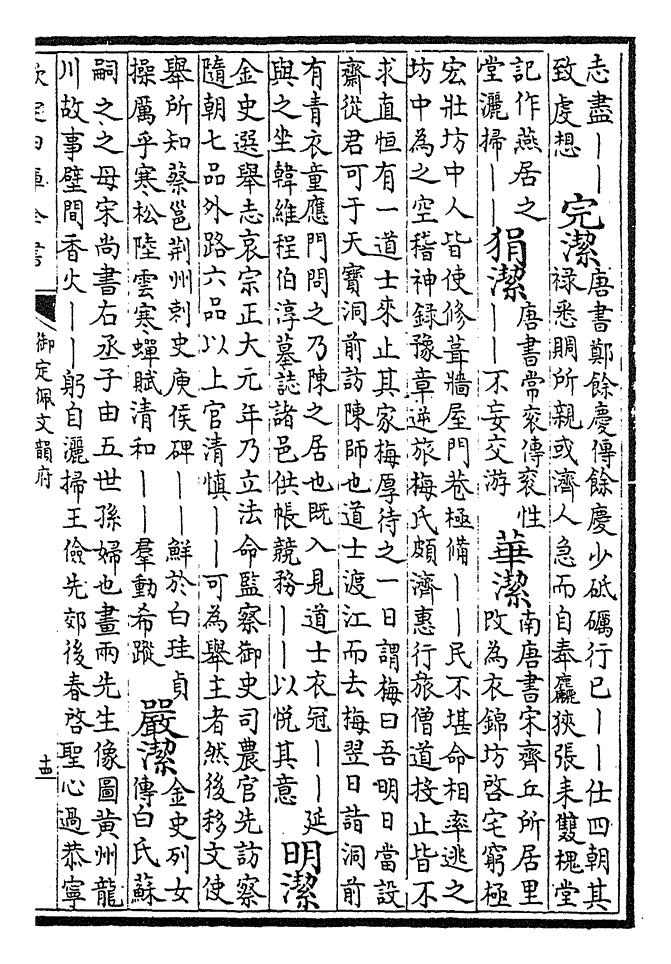 志盡｜｜
致虔想
完潔
唐書鄭餘慶傳餘慶少砥礪行已｜｜仕四朝其
祿悉賙所親或濟人急而自奉麤狹張耒雙槐堂
記作燕居之
堂灑掃｜｜
狷潔
唐書常衮傳衮性
｜｜不妄交游
華潔
南唐書宋齊丘所居里
改為衣錦坊啓宅窮極
宏壯坊中人皆使修葺牆屋門巷極備｜｜民不堪命相率逃之
坊中為之空稽神錄豫章逆旅梅氏頗濟惠行旅僧道投止皆不
求直恒有一道士來止其家梅厚待之一日謂梅曰吾明日當設
齋從君可于天寶洞前訪陳師也道士渡江而去梅翌日詣洞前
有青衣童應門問之乃陳之居也既入見道士衣冠｜｜延
與之坐韓維程伯淳墓誌諸邑供帳競務｜｜以悦其意
明潔
金史選舉志哀宗正大元年乃立法命監察御史司農官先訪察
隨朝七品外路六品以上官清慎｜｜可為舉主者然後移文使
舉所知蔡邕荆州刺史庾侯碑｜｜鮮於白珪貞
操厲乎寒松陸雲寒蟬賦清和｜｜羣動希蹤
嚴潔
金史列女
傳白氏蘇
嗣之之母宋尚書右丞子由五世孫婦也畫兩先生像圖黄州龍
川故事壁間香火｜｜躬自灑掃王儉先郊後春啓聖心過恭寧
欽定四庫全書
御定佩文韻府
十四